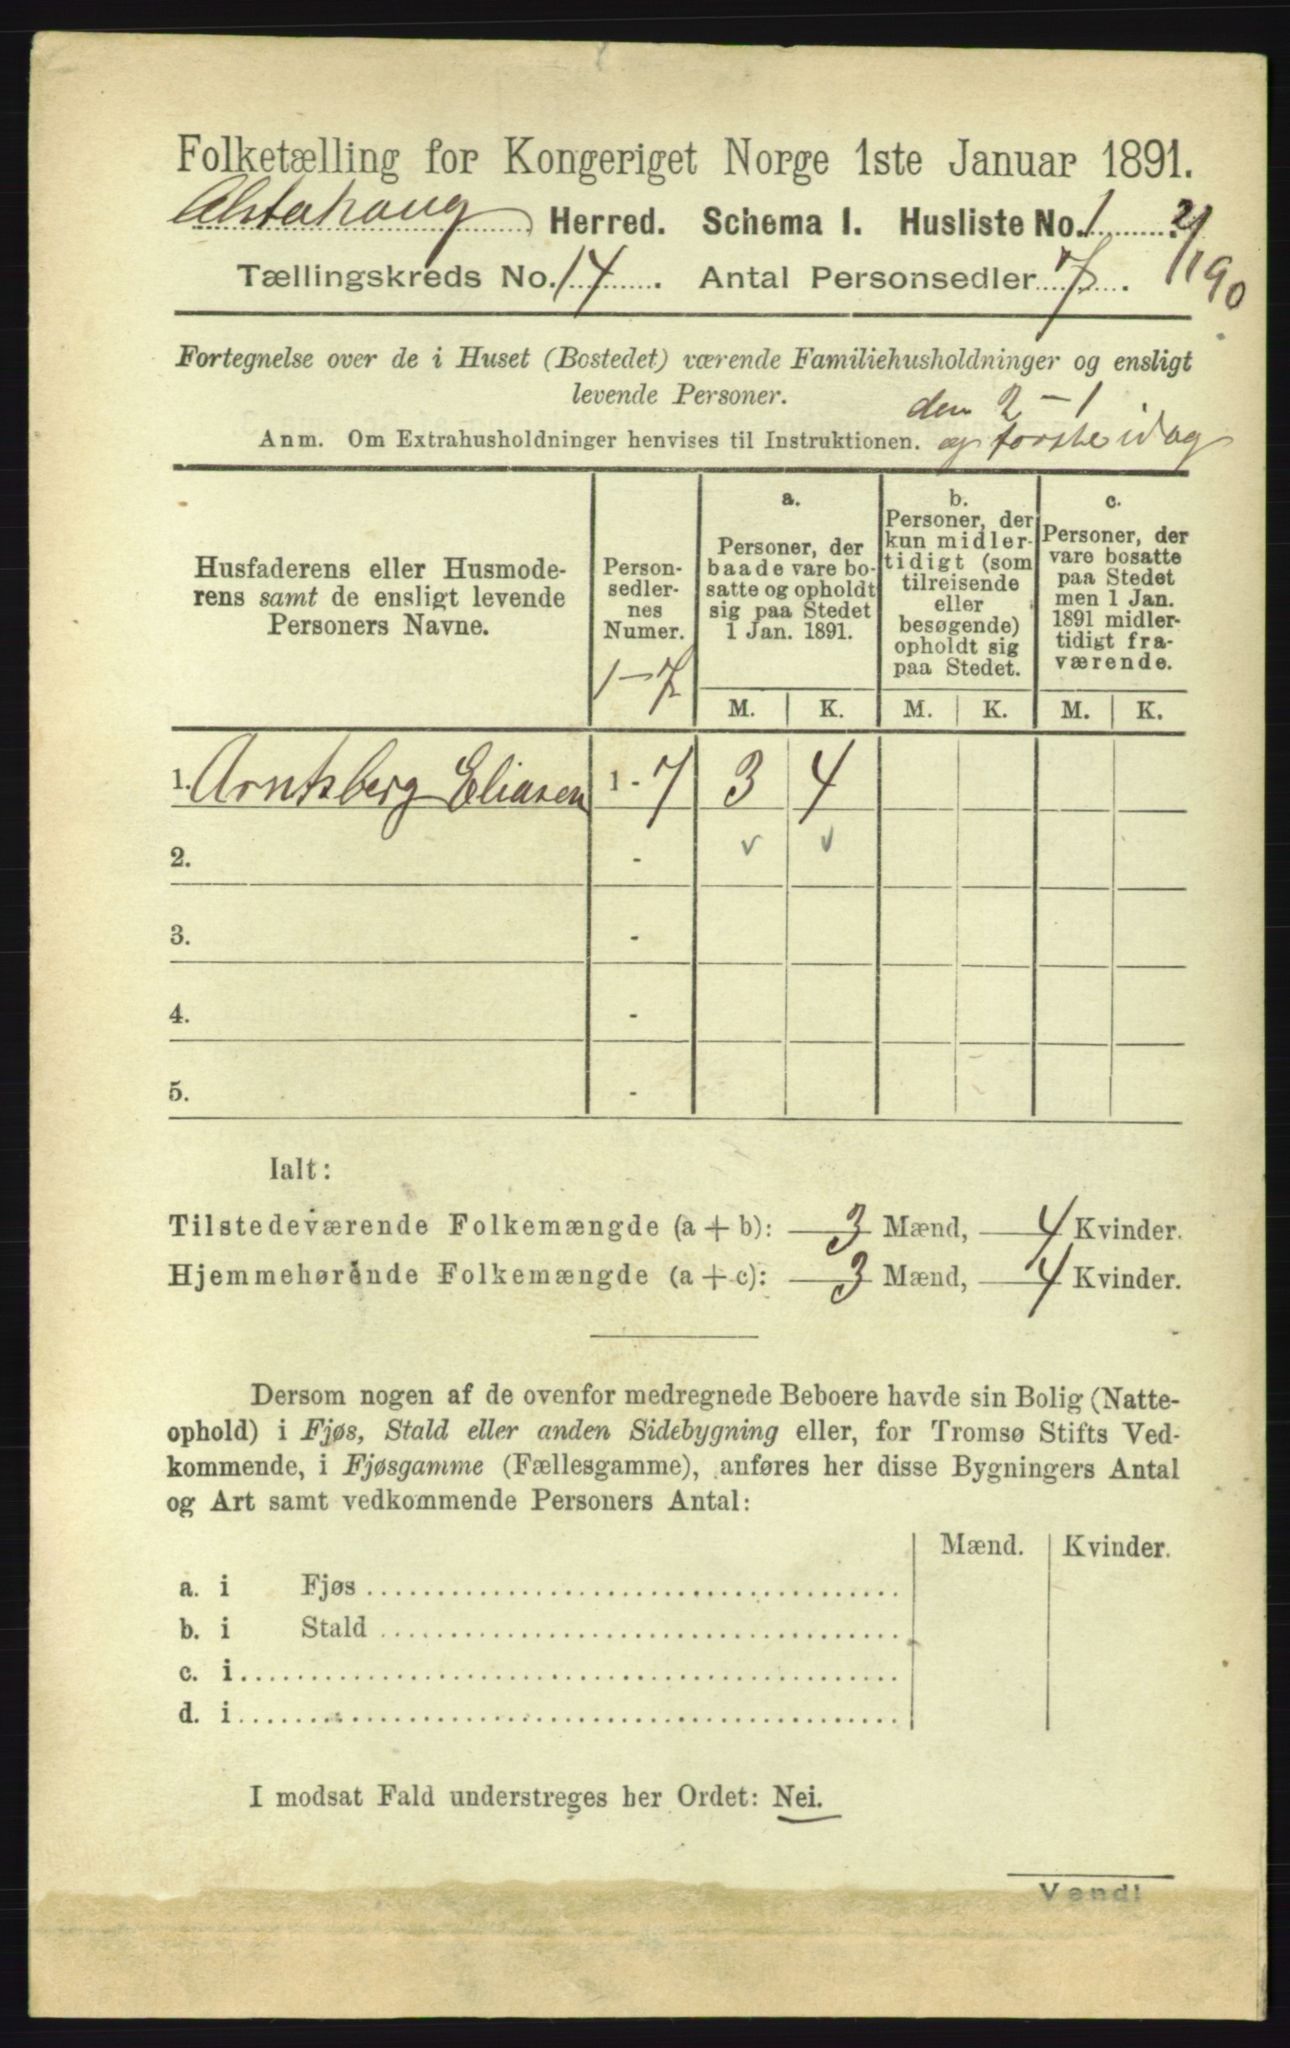 Folketælling for Kongeriget Norge 1ste Januar 1891.
Alstahoug Herred. Schema I. Husliste No. 1 2/1 90
Tællingskreds No. 14. Antal Personsedler 7.
Fortegnelse over de i Huset (Bostedet) værende Familiehusholdninger og ensligt
levende Personer.
den 2-1
Anm. Om Extrahusholdninger henvises til Instruktionen. og forste idag
Husfaderens eller Husmode-
rens samt de ensligt levende
Personers Navne.
Person-
sedler-
nes
Numer.
1-7
a.
Personer, der
baade vare bo-
satte og opholdt
sig paa Stedet
1 Jan. 1891.
b.
Personer, der
kun midler-
tidigt (som
tilreisende
eller
besøgende)
opholdt sig
paa Stedet.
c.
Personer, der
vare bosatte
paa Stedet
men 1 Jan.
1891 midler-
tidigt fra-
værende.
M. K. M. K. M. K.
1. Arntsberg Eliasen 1-7 3 4
2. - v v
3. -
4. -
5. -
Ialt:
Tilstedeværende Folkemængde (a + b): 3 Mænd, 4 Kvinder.
Hjemmehørende Folkemængde (a + c): 3 Mænd, 4 Kvinder.
Dersom nogen af de ovenfor medregnede Beboere havde sin Bolig (Natte-
ophold) i Fjøs, Stald eller anden Sidebygning eller, for Tromsø Stifts Ved-
kommende, i Fjøsgamme (Fællesgamme), anføres her disse Bygningers Antal
og Art samt vedkommende Personers Antal:
Mænd. Kvinder.
a. i Fjøs
b. i Stald
c. i
d. i
I modsat Fald understreges her Ordet: Nei.
Vend!